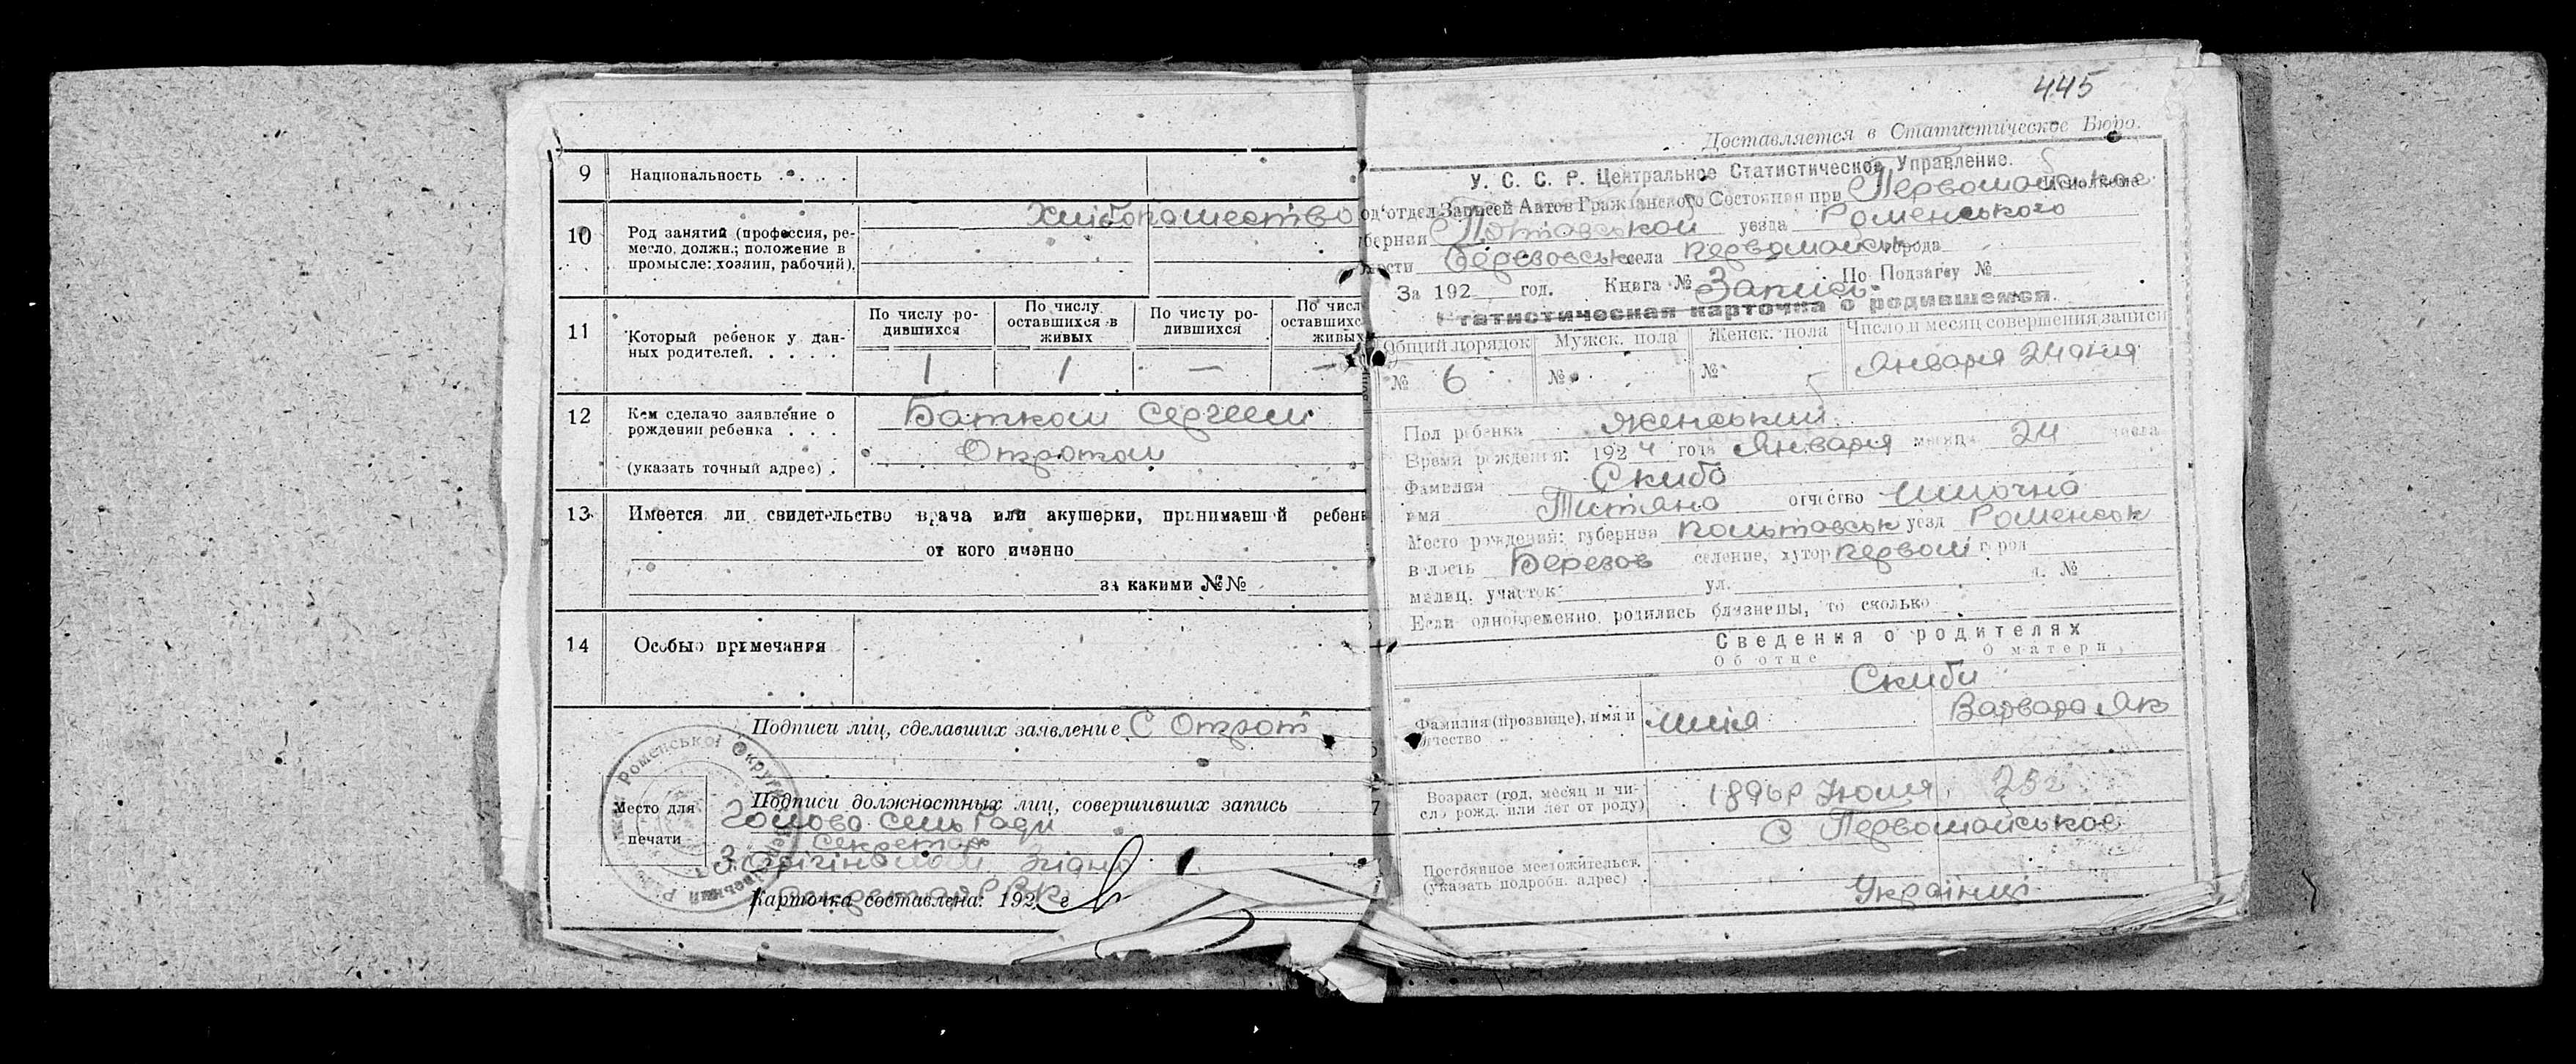 9 Национальность . . . . .
10 Род занятий (профессия, ре-
месло, должн.; положение в
промысле: хозяин, рабочий).
Хлібопашество
11 Который ребенок у дан-
ных родителей. . . . .
По числу ро-
дившихся
По числу
оставшихся в
живых
По числу ро-
дившихся
По числ
оставшихс
живых
1 1 — —
12 Кем сделано заявление о
рождении ребенка . . .
(указать точный адрес) .
Батком Сергеем
13 Имеется ли свидетельство врача или акушерки, принимавшей ребен
от кого именно
за какими №№
14 Особые примечания
Подписи лиц, сделавших заявление С
Место для
печати
Подписи должностных лиц, совершивших запись
Голова сільРади
Секретар
З орігіналом згідно
Карточка составлена: 192 г
445
Доставляется в Статистическое Бюро.
У. С. С. Р. Центральное Статистическое Управление.
од'отдел Записей Актов Гражданского Состояния при Первомайское
бернии Полтавськой уезда Роменського
лости Березовськ села Первомайськ города
За 192 год. Книга № Запись По Подзагсу №
Статистическая карточка о родившемся.
Общий порядок Мужск. пола Женск. пола Число и месяц совершения записи
№ 6 № № Января 24 дня
Пол ребенка женський
Время рождения: 1924 года Января месяца 24 числа
Фамилия Скиба
имя Титяна отчество
Место рождения: губерния Полтавськ уезд Роменськ
волость Березов селение, хутор Первом город
милиц. участок ул. д. №
Если одновременно родились близнецы, то сколько
Сведения о родителях
Об отце О матери
Скиби
Фамилия (прозвище), имя и
отчество
Варвара Як
Возраст (год, месяц и чи-
сло рожд. или лет от роду)
1896 р Июля 25 г
С Первомайськое
Постоянное местожительст.
(указать подробн. адрес)
Українці